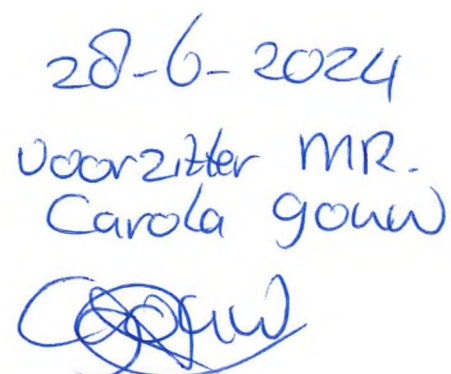 28-6-2024
voorzitter MR.
Carola gouw